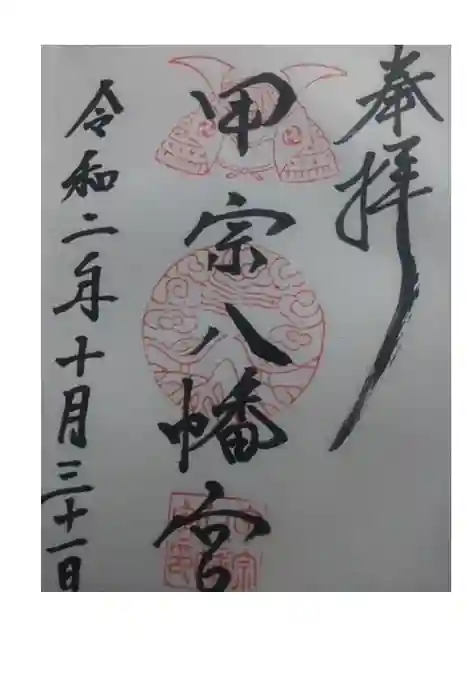 奉拝
甲宗八幡宮
令和二年十月三十一日